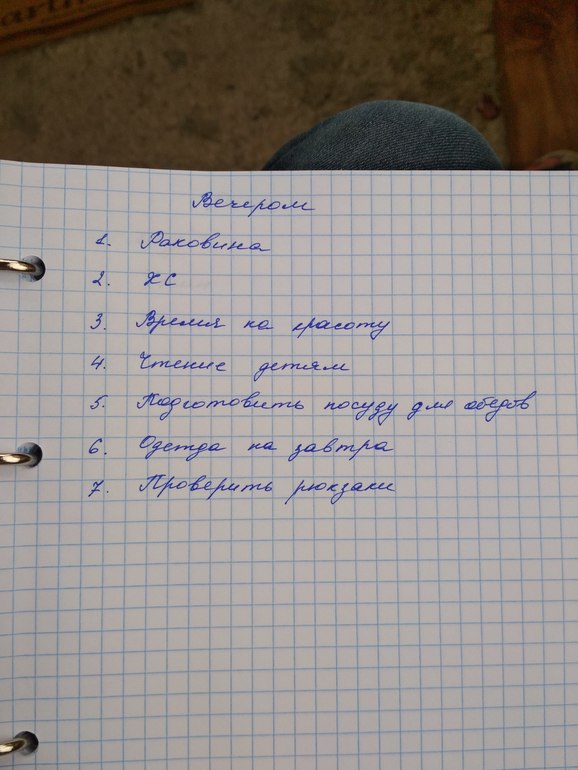 Вечером
1. Раковина
2. ХС
3. Время на красоту
4. Чтение детям
5. Подготовить посуду для обедов
6. Одежда на завтра
7. Проверить рюкзаки